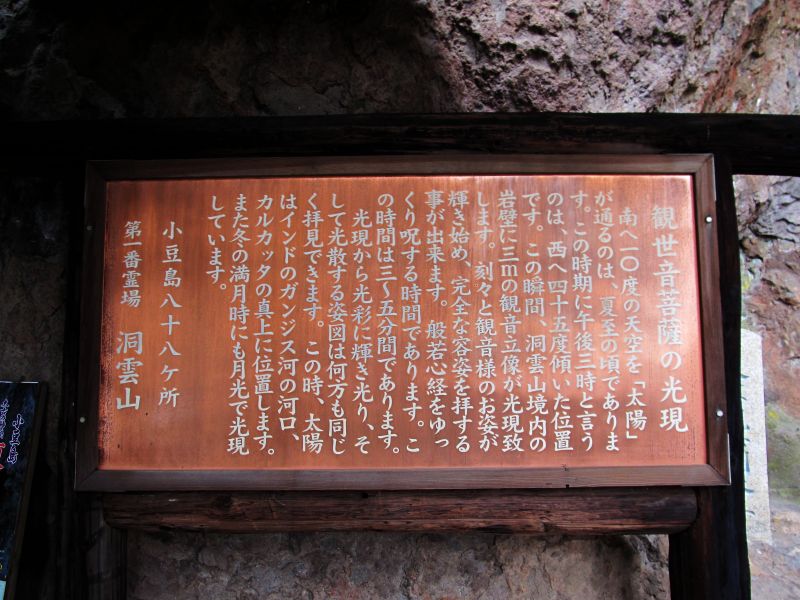 観世音菩薩の光現
南へ一〇度の天空を「太陽」
が通るのは、夏至の頃でありま
す。この時期に午後三時と言う
のは、西へ四十五度傾いた位置
です。この瞬間、洞雲山境内の
岩壁に三mの観音立像が光現致
します。刻々と観音様のお姿が
輝き始め、完全な容姿を拝する
事が出来ます。般若心経をゆっ
くり呪する時間であります。こ
の時間は三〜五分間であります。
光現から光彩に輝き光り、そ
して光散する姿図は何方も同じ
く拝見できます。この時、太陽
はインドのガンジス河の河口、
カルカッタの真上に位置します。
また冬の満月時にも月光で光現
しています。
小豆島八十八ケ所
第一番霊場　洞雲山
小豆島